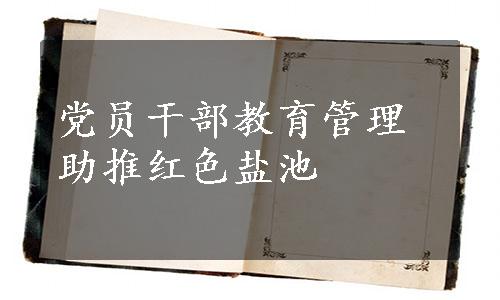 党员干部教育管理
助推红色盐池